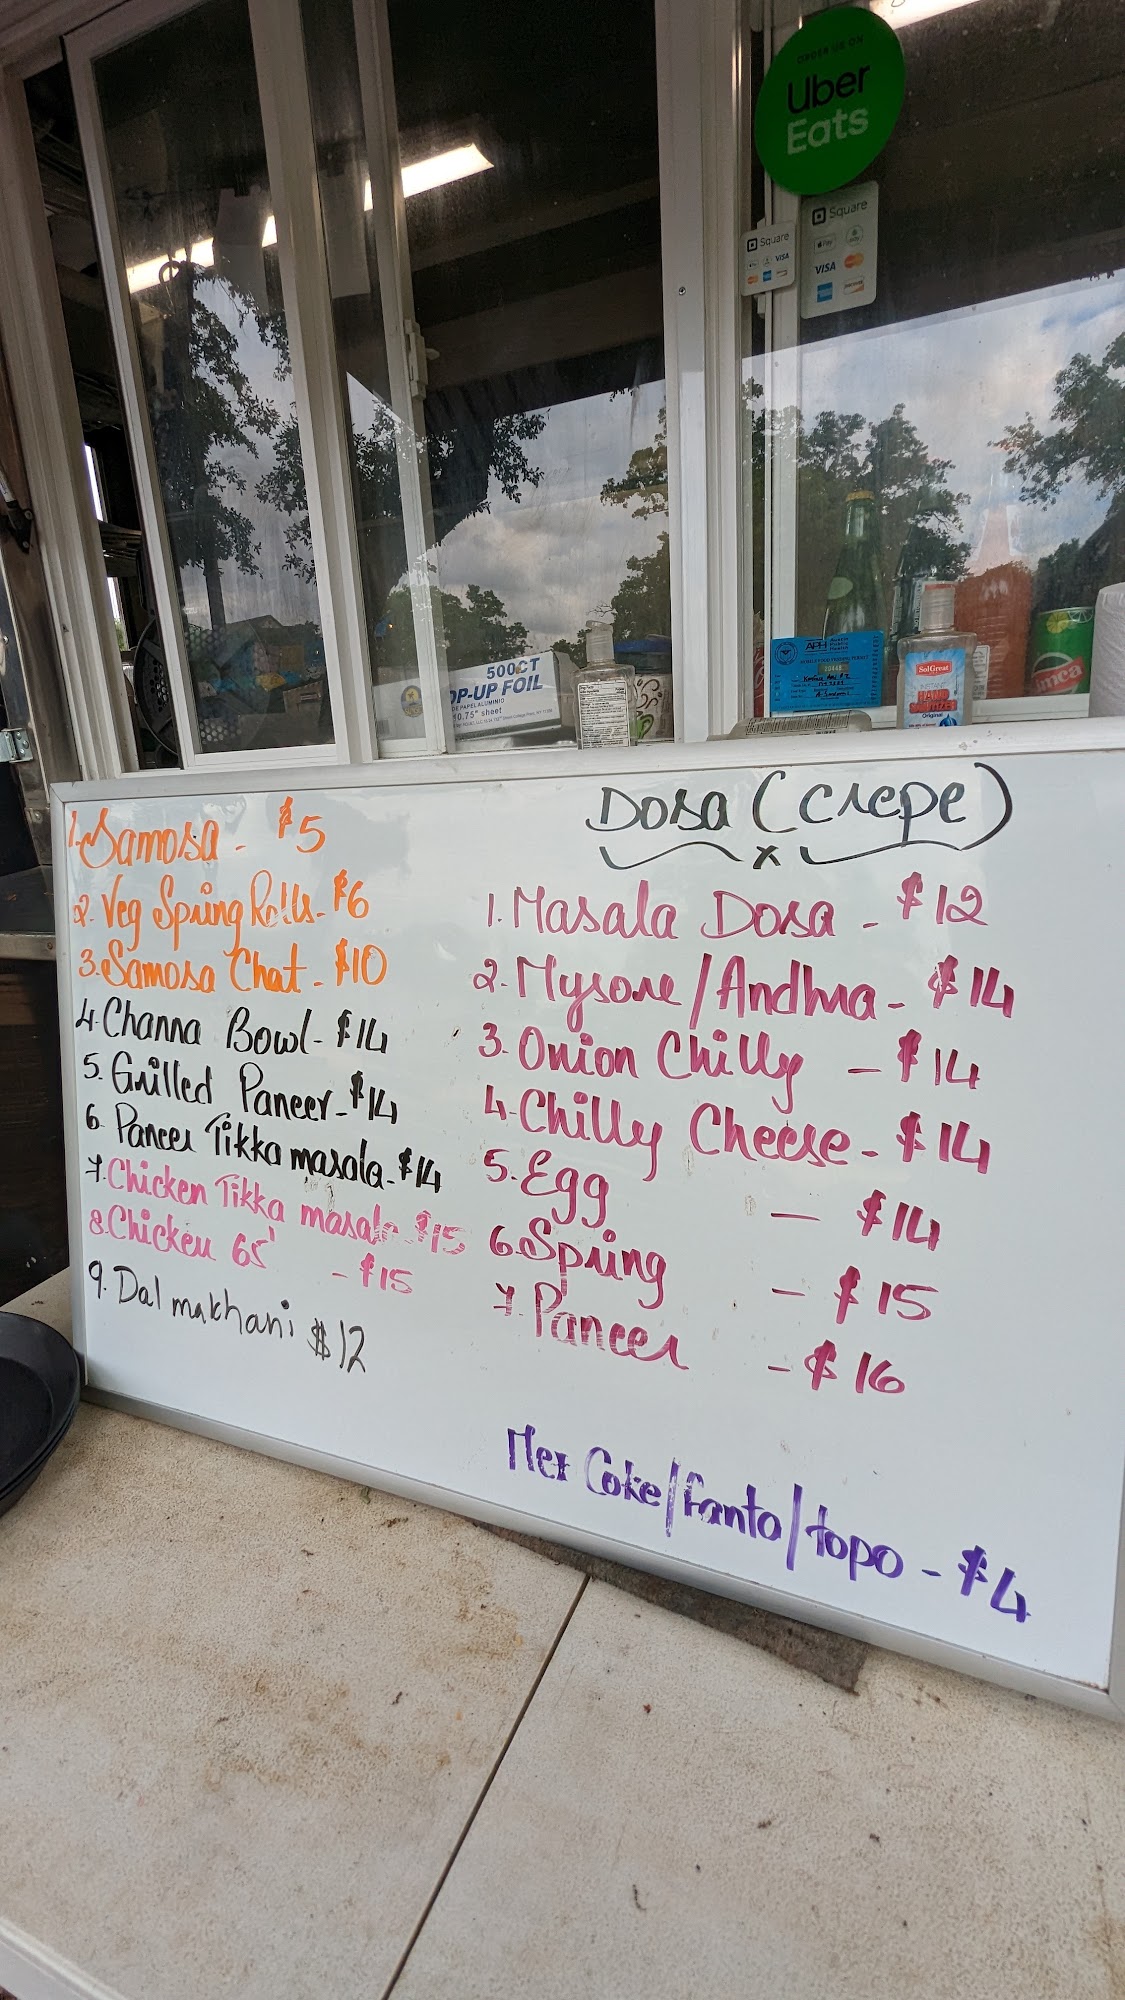 ORDER US ON
Uber
Eats
Square
VISA
Square
Pay
VISA
500CT
OP-UP FOIL
10.75" sheet
APH Austin Public Health
SolGreat
INSTANT
HAND SANITIZER
Original
1. Samosa - $5
2. Veg Spring Rolls - $6
3. Samosa Chat - $10
4. Channa Bowl - $14
5. Grilled Paneer - $14
6. Paneer Tikka masala - $14
7. Chicken Tikka masala $15
8. Chicken 65' - $15
9. Dal makhani $12
Dosa (crepe)
x
1. Masala Dosa - $12
2. Mysore/Andhra - $14
3. Onion Chilly - $14
4. Chilly Cheese - $14
5. Egg - $14
6. Spring - $15
7. Paneer - $16
Mex Coke/fanta/topo - $4